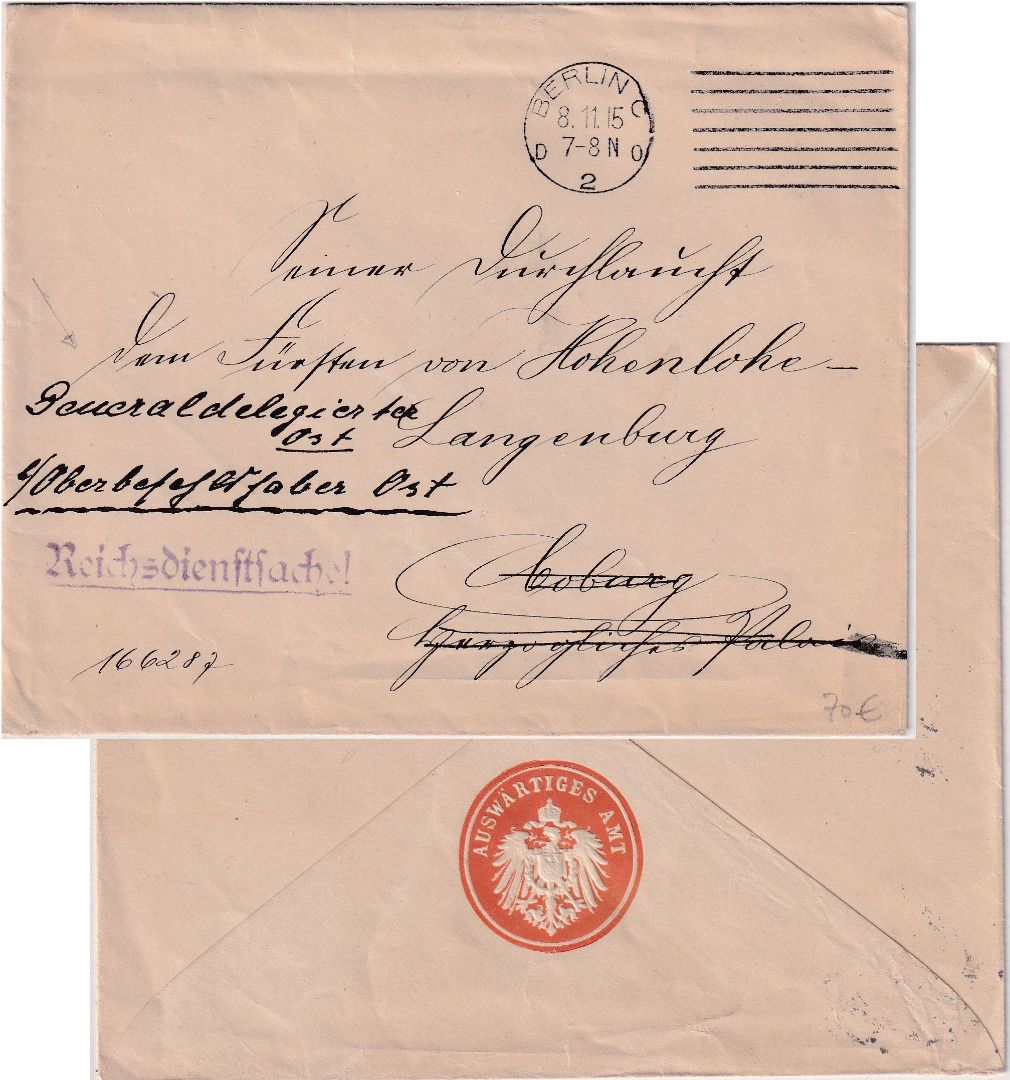 BERLIN C
8. 11. 15
D 7-8 N O
2
Seiner Durchlaucht
dem Fürsten von Hohenlohe-
Generaldelegierter
Ost Langenburg
b/Oberbefehlshaber Ost
Reichsdienstsache!
Coburg
Herzogliches Palais
166287
70 €
AUSWÄRTIGES AMT